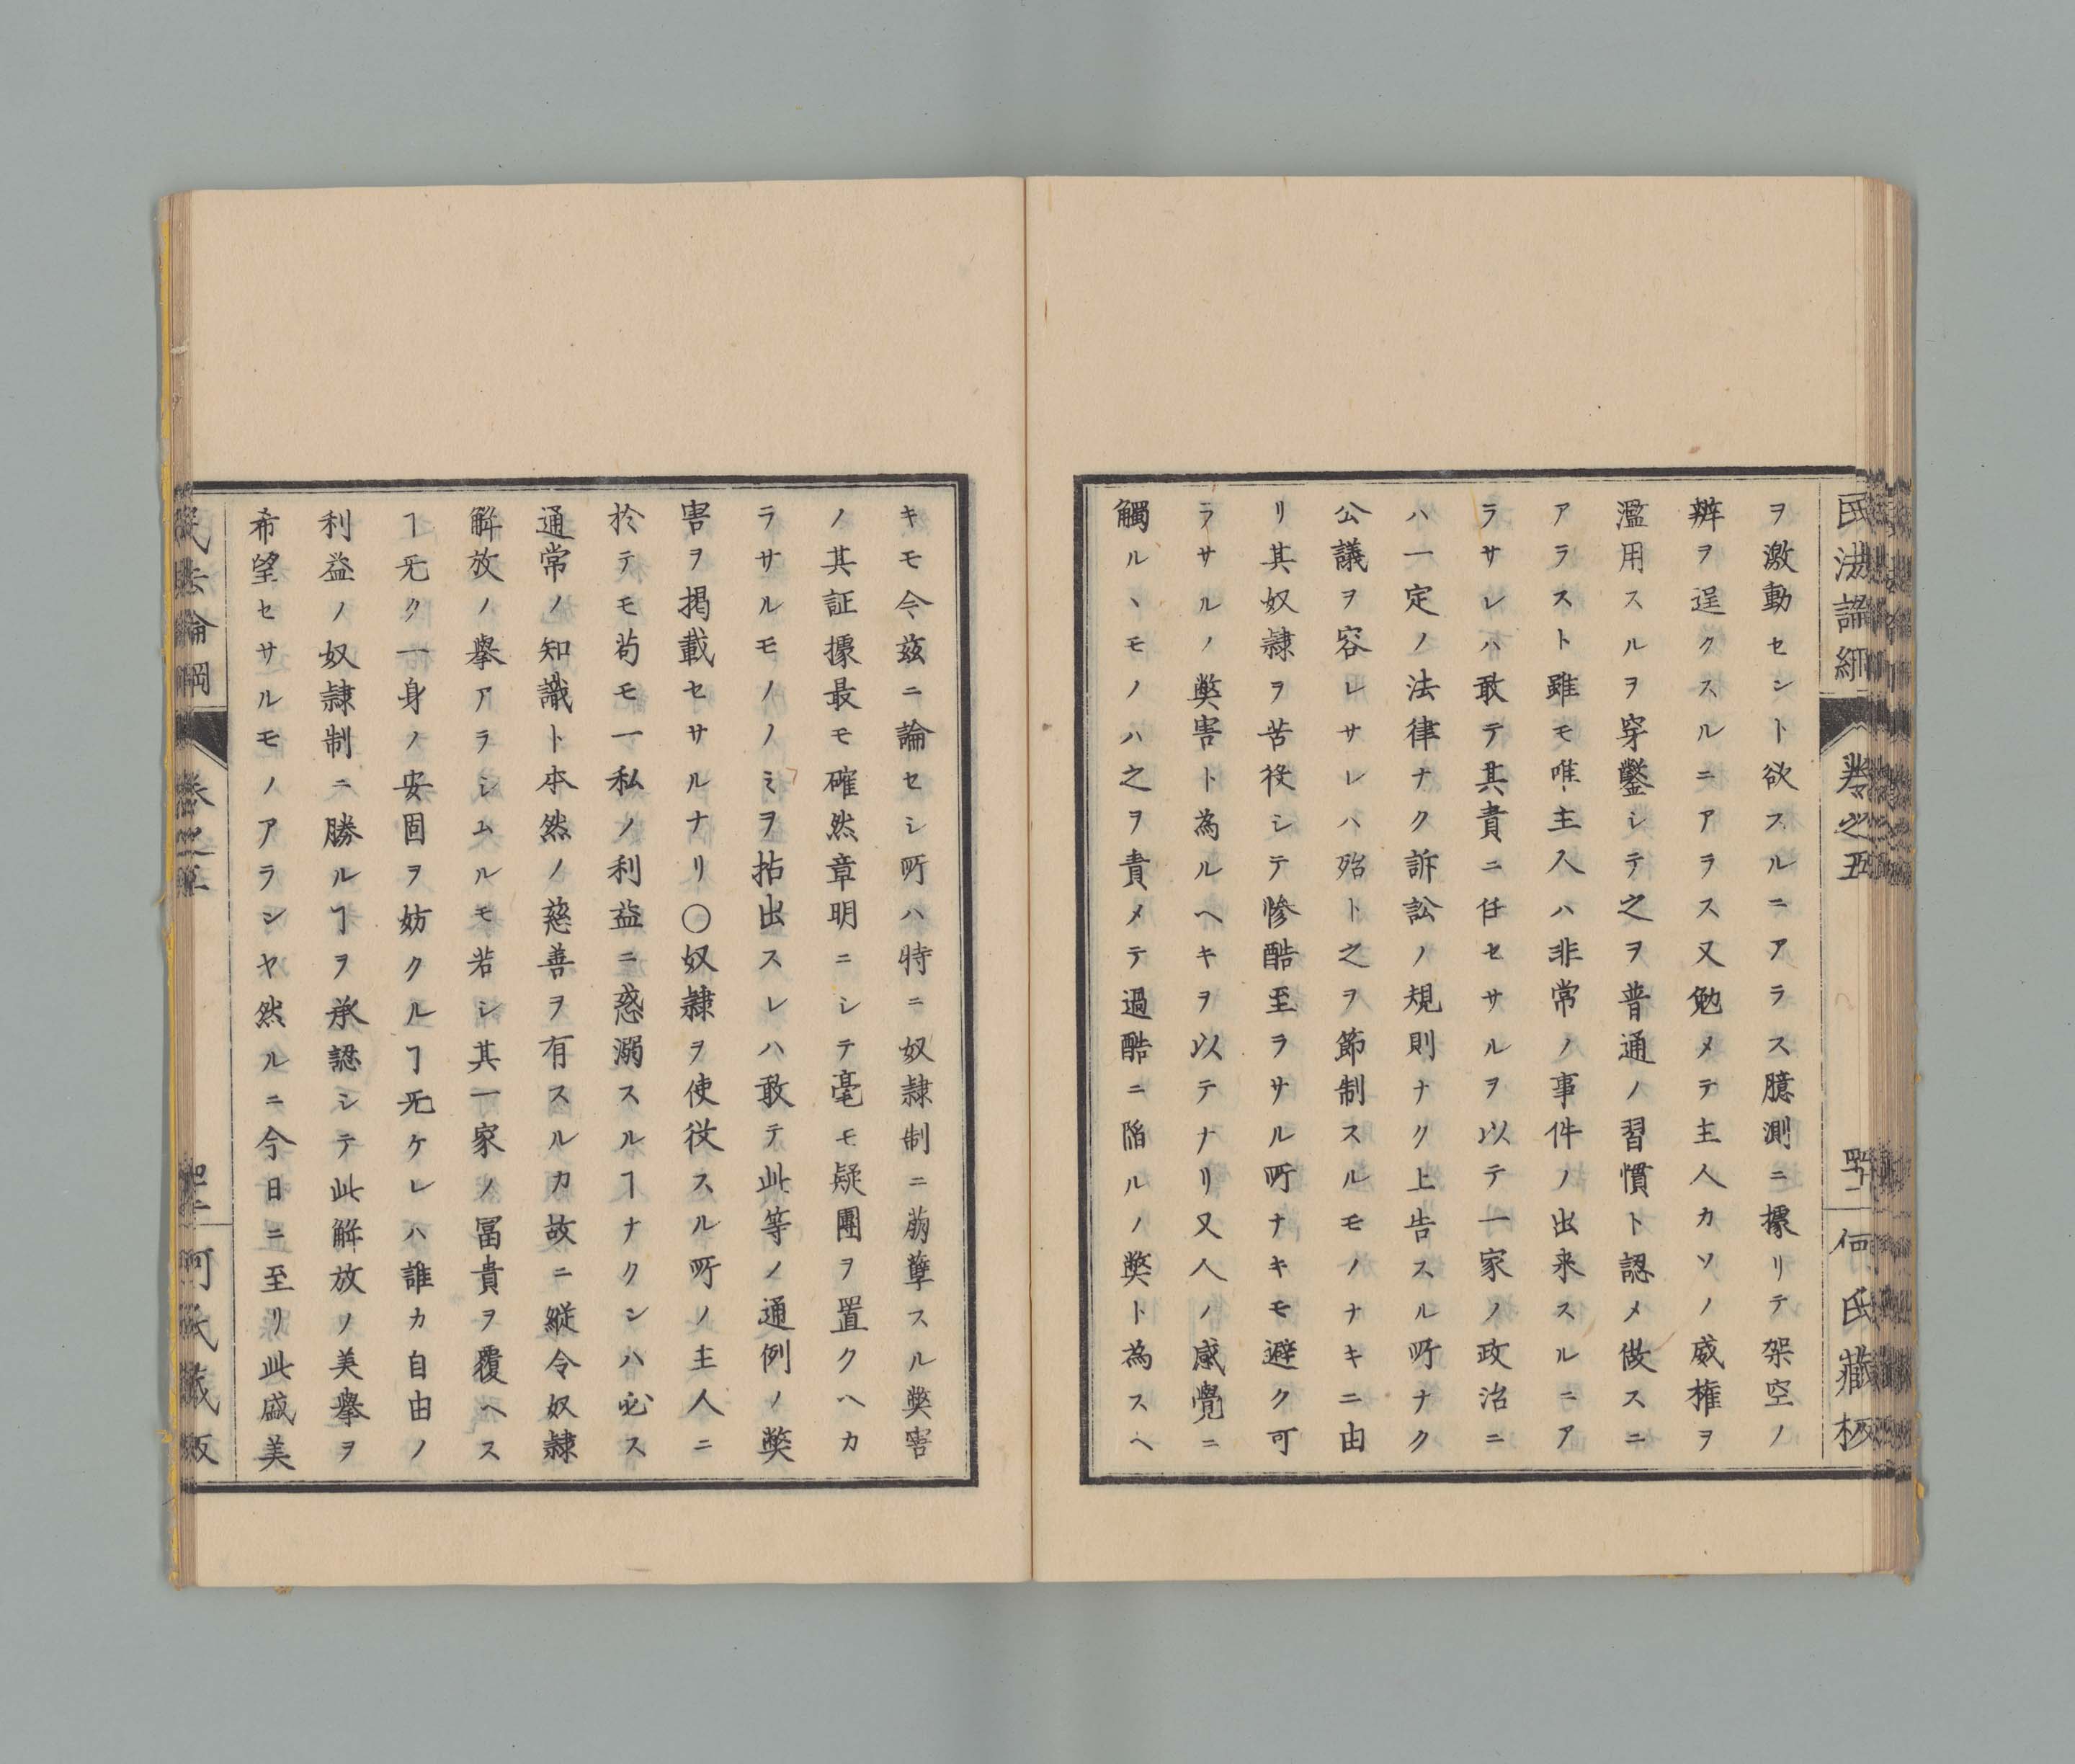 民法論綱 卷之五 四十二 何氏藏板
ヲ激動セシト欲スルニアラス臆測ニ據リテ架空ノ
辨ヲ逞クスルニアラス又勉メテ主人カソノ威權ヲ
濫用スルヲ穿鑿シテ之ヲ普通ノ習慣ト認メ做スニ
アラスト雖モ唯主人ハ非常ノ事件ノ出来スルニア
ラサレハ敢テ其責ニ任セサルヲ以テ一家ノ政治ニ
ハ一定ノ法律ナク訴訟ノ規則ナク上告スル所ナク
公議ヲ容レサレハ殆ト之ヲ節制スルモノナキニ由
リ其奴隷ヲ苦役シテ惨酷至ラサル所ナキモ避ク可
ラサルノ弊害ト為ルヘキヲ以テナリ又人ノ感覺ニ
觸ルヽモノハ之ヲ責メテ過酷ニ陷ルノ弊ト為スヘ
キモ今茲ニ論セシ所ハ特ニ奴隷制ニ萠孽スル弊害
ノ其証據最モ確然章明ニシテ毫モ疑團ヲ置クヘカ
ラサルモノノミヲ拈出スレハ敢テ此等ノ通例ノ弊
害ヲ掲載セサルナリ〇奴隷ヲ使役スル所ノ主人ニ
於テモ苟モ一私ノ利益ニ惑溺スルヿナクンハ必ス
通常ノ知識ト本然ノ慈善ヲ有スルカ故ニ縦令奴隷
解放ノ擧アラシムルモ若シ其一家ノ冨貴ヲ覆ヘス
ヿ无ク一身ノ安固ヲ妨クルヿ无ケレハ誰カ自由ノ
利益ノ奴隷制ニ勝ルヿヲ承認シテ此解放ノ美擧ヲ
希望セサルモノアラシヤ然ルニ今日ニ至リ此盛美
民法論綱 卷之五 四十二 何氏藏版